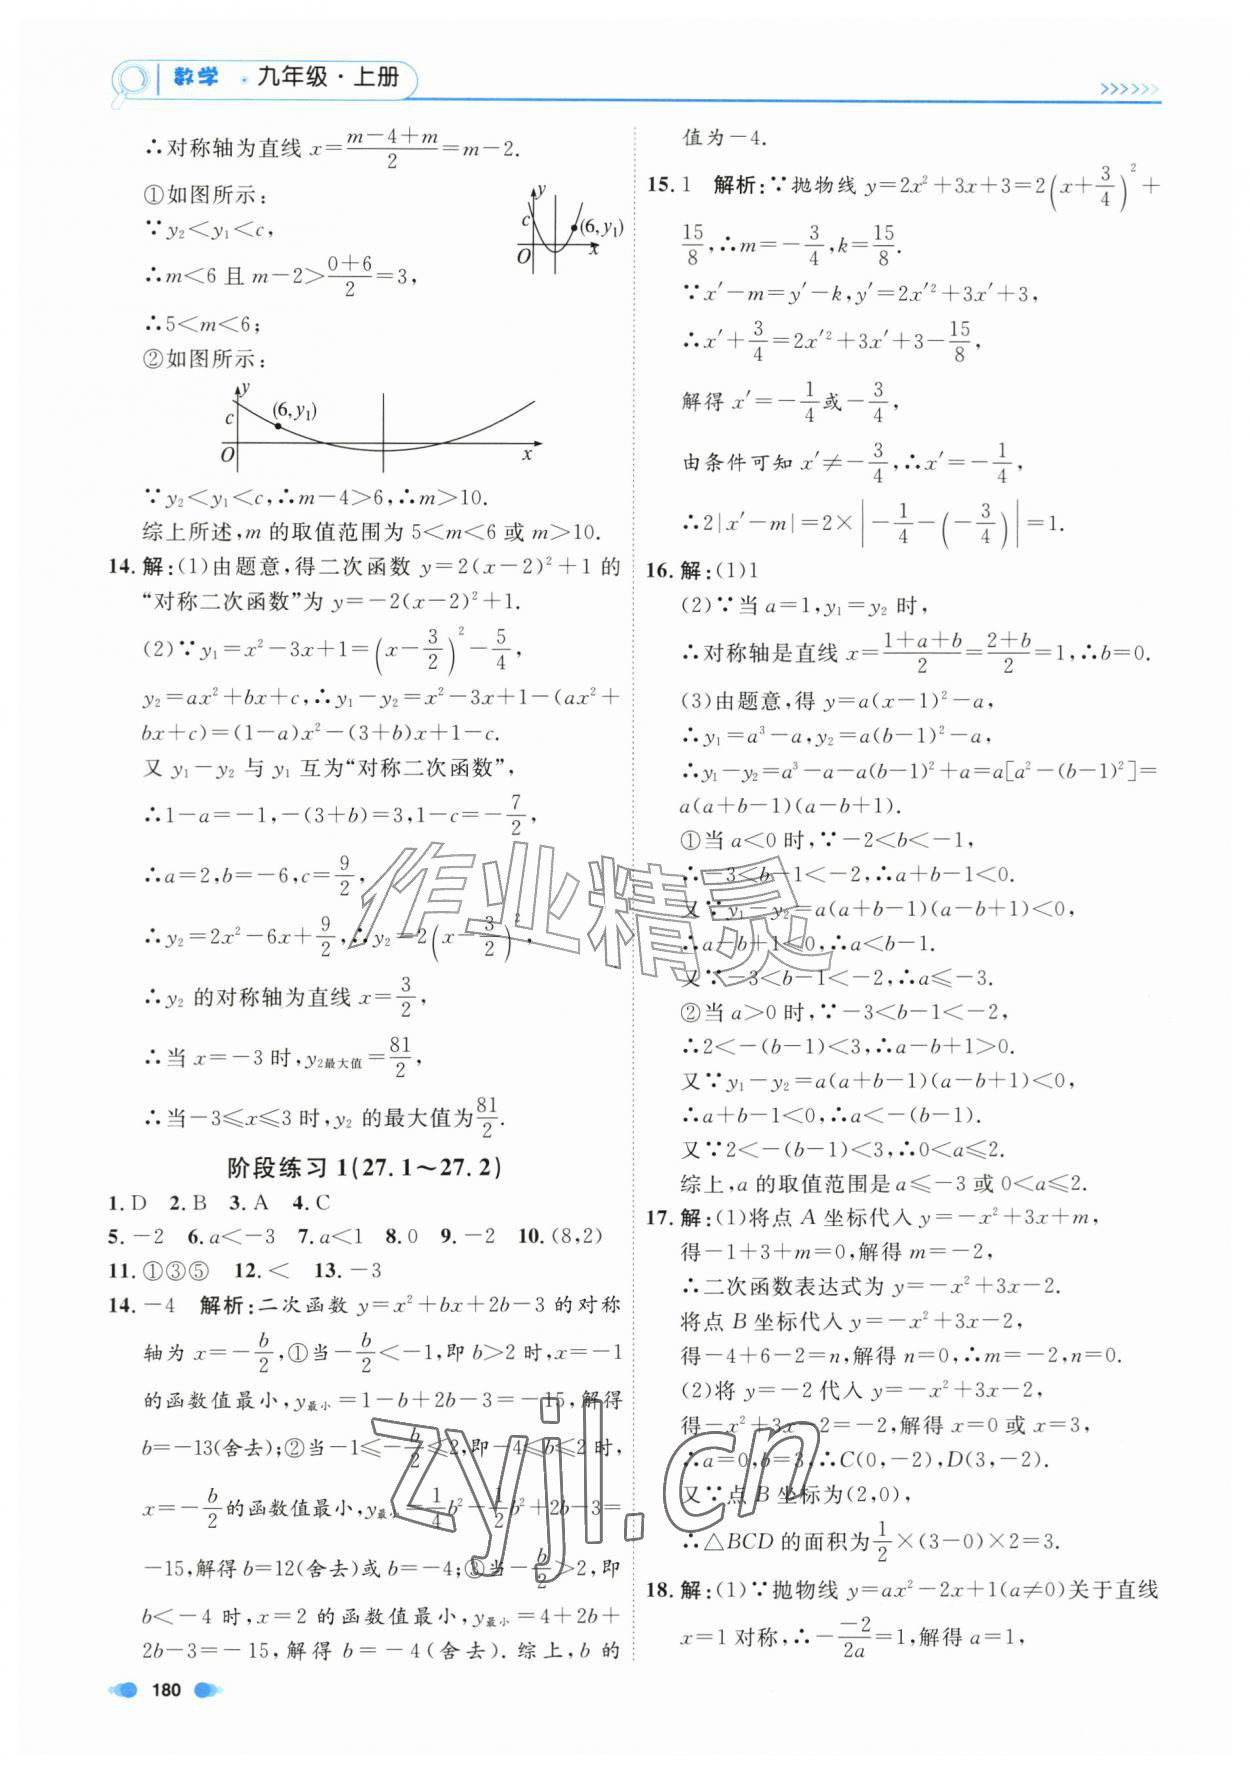 数学 · 九年级·上册
∴对称轴为直线 x=\frac{m-4+m}{2}=m-2.
①如图所示:
∵y₂<y₁<c,
∴m<6 且 m-2>\frac{0+6}{2}=3,
y c (6,y₁) O x
∴5<m<6;
②如图所示:
y c (6,y₁) O x
∵y₂<y₁<c,∴m-4>6,∴m>10.
综上所述,m 的取值范围为 5<m<6 或 m>10.
14.解:(1)由题意,得二次函数 y=2(x-2)²+1 的
“对称二次函数”为 y=-2(x-2)²+1.
(2)∵y₁=x²-3x+1=(x-\frac{3}{2})²-\frac{5}{4}
y₂=ax²+bx+c,∴y₁-y₂=x²-3x+1-(ax²+
bx+c)=(1-a)x²-(3+b)x+1-c.
又 y₁-y₂ 与 y₁ 互为“对称二次函数”,
∴1-a=-1,-(3+b)=3,1-c=-\frac{7}{2},
∴a=2,b=-6,c=\frac{9}{2},
∴y₂=2x²-6x+\frac{9}{2},∴y₂=2(x-\frac{3}{2})²,
∴y₂ 的对称轴为直线 x=\frac{3}{2},
∴当 x=-3 时,y₂最大值=\frac{81}{2},
∴当-3≤x≤3 时,y₂ 的最大值为\frac{81}{2}.
阶段练习 1(27.1～27.2)
1.D 2.B 3.A 4.C
5.-2 6.a<-3 7.a<1 8.0 9.-2 10.(8,2)
11.①③⑤ 12.< 13.-3
14.-4 解析:二次函数 y=x²+bx+2b-3 的对称
轴为 x=-\frac{b}{2},①当-\frac{b}{2}<-1,即 b>2 时,x=-1
的函数值最小,y最小=1-b+2b-3=-15,解得
b=-13(舍去);②当-1≤-\frac{b}{2}≤2,即-4≤b≤2 时,
x=-\frac{b}{2}的函数值最小,y最小=\frac{1}{4}b²-\frac{1}{2}b²+2b-3=
-15,解得 b=12(舍去)或 b=-4;③当-\frac{b}{2}>2,即
b<-4 时,x=2 的函数值最小,y最小=4+2b+
2b-3=-15,解得 b=-4(舍去).综上,b 的
180
值为-4.
15.1 解析:∵抛物线 y=2x²+3x+3=2(x+\frac{3}{4})²+
\frac{15}{8},∴m=-\frac{3}{4},k=\frac{15}{8}.
∵x′-m=y′-k,y′=2x′²+3x′+3,
∴x′+\frac{3}{4}=2x′²+3x′+3-\frac{15}{8},
解得 x′=-\frac{1}{4}或-\frac{3}{4},
由条件可知 x′≠-\frac{3}{4},∴x′=-\frac{1}{4},
∴2|x′-m|=2×|-\frac{1}{4}-(-\frac{3}{4})|=1.
16.解:(1)1
(2)∵当 a=1,y₁=y₂ 时,
∴对称轴是直线 x=\frac{1+a+b}{2}=\frac{2+b}{2}=1,∴b=0.
(3)由题意,得 y=a(x-1)²-a,
∴y₁=a³-a,y₂=a(b-1)²-a,
∴y₁-y₂=a³-a-a(b-1)²+a=a[a²-(b-1)²]=
a(a+b-1)(a-b+1).
①当 a<0 时,∵-2<b<-1,
∴-3<b-1<-2,∴a+b-1<0.
又∵y₁-y₂=a(a+b-1)(a-b+1)<0,
∴a-b+1<0,∴a<b-1.
又∵-3<b-1<-2,∴a≤-3.
②当 a>0 时,∵-3<b-1<-2,
∴2<-(b-1)<3,∴a-b+1>0.
又∵y₁-y₂=a(a+b-1)(a-b+1)<0,
∴a+b-1<0,∴a<-(b-1).
又∵2<-(b-1)<3,∴a≤2.
综上,a 的取值范围是 a≤-3 或 0<a≤2.
17.解:(1)将点 A 坐标代入 y=-x²+3x+m,
得-1+3+m=0,解得 m=-2,
∴二次函数表达式为 y=-x²+3x-2.
将点 B 坐标代入 y=-x²+3x-2,
得-4+6-2=n,解得 n=0,∴m=-2,n=0.
(2)将 y=-2 代入 y=-x²+3x-2,
得-x²+3x-2=-2,解得 x=0 或 x=3,
∴a=0,b=3,∴C(0,-2),D(3,-2).
又∵点 B 坐标为(2,0),
∴△BCD 的面积为\frac{1}{2}×(3-0)×2=3.
18.解:(1)∵抛物线 y=ax²-2x+1(a≠0)关于直线
x=1 对称,∴-\frac{-2}{2a}=1,解得 a=1,
作业精灵
zyjl.cn